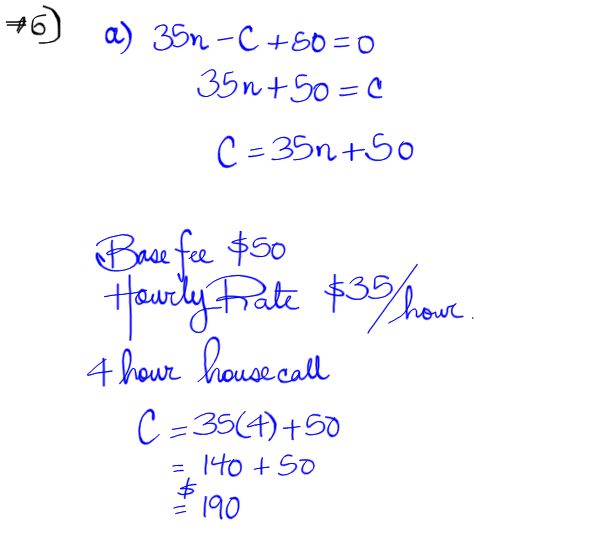 #6) a) 35n - C + 50 = 0
35n + 50 = C
C = 35n + 50
Base fee $50
Hourly Rate $35/hour.
4 hour house call
C = 35(4) + 50
= 140 + 50
= $190